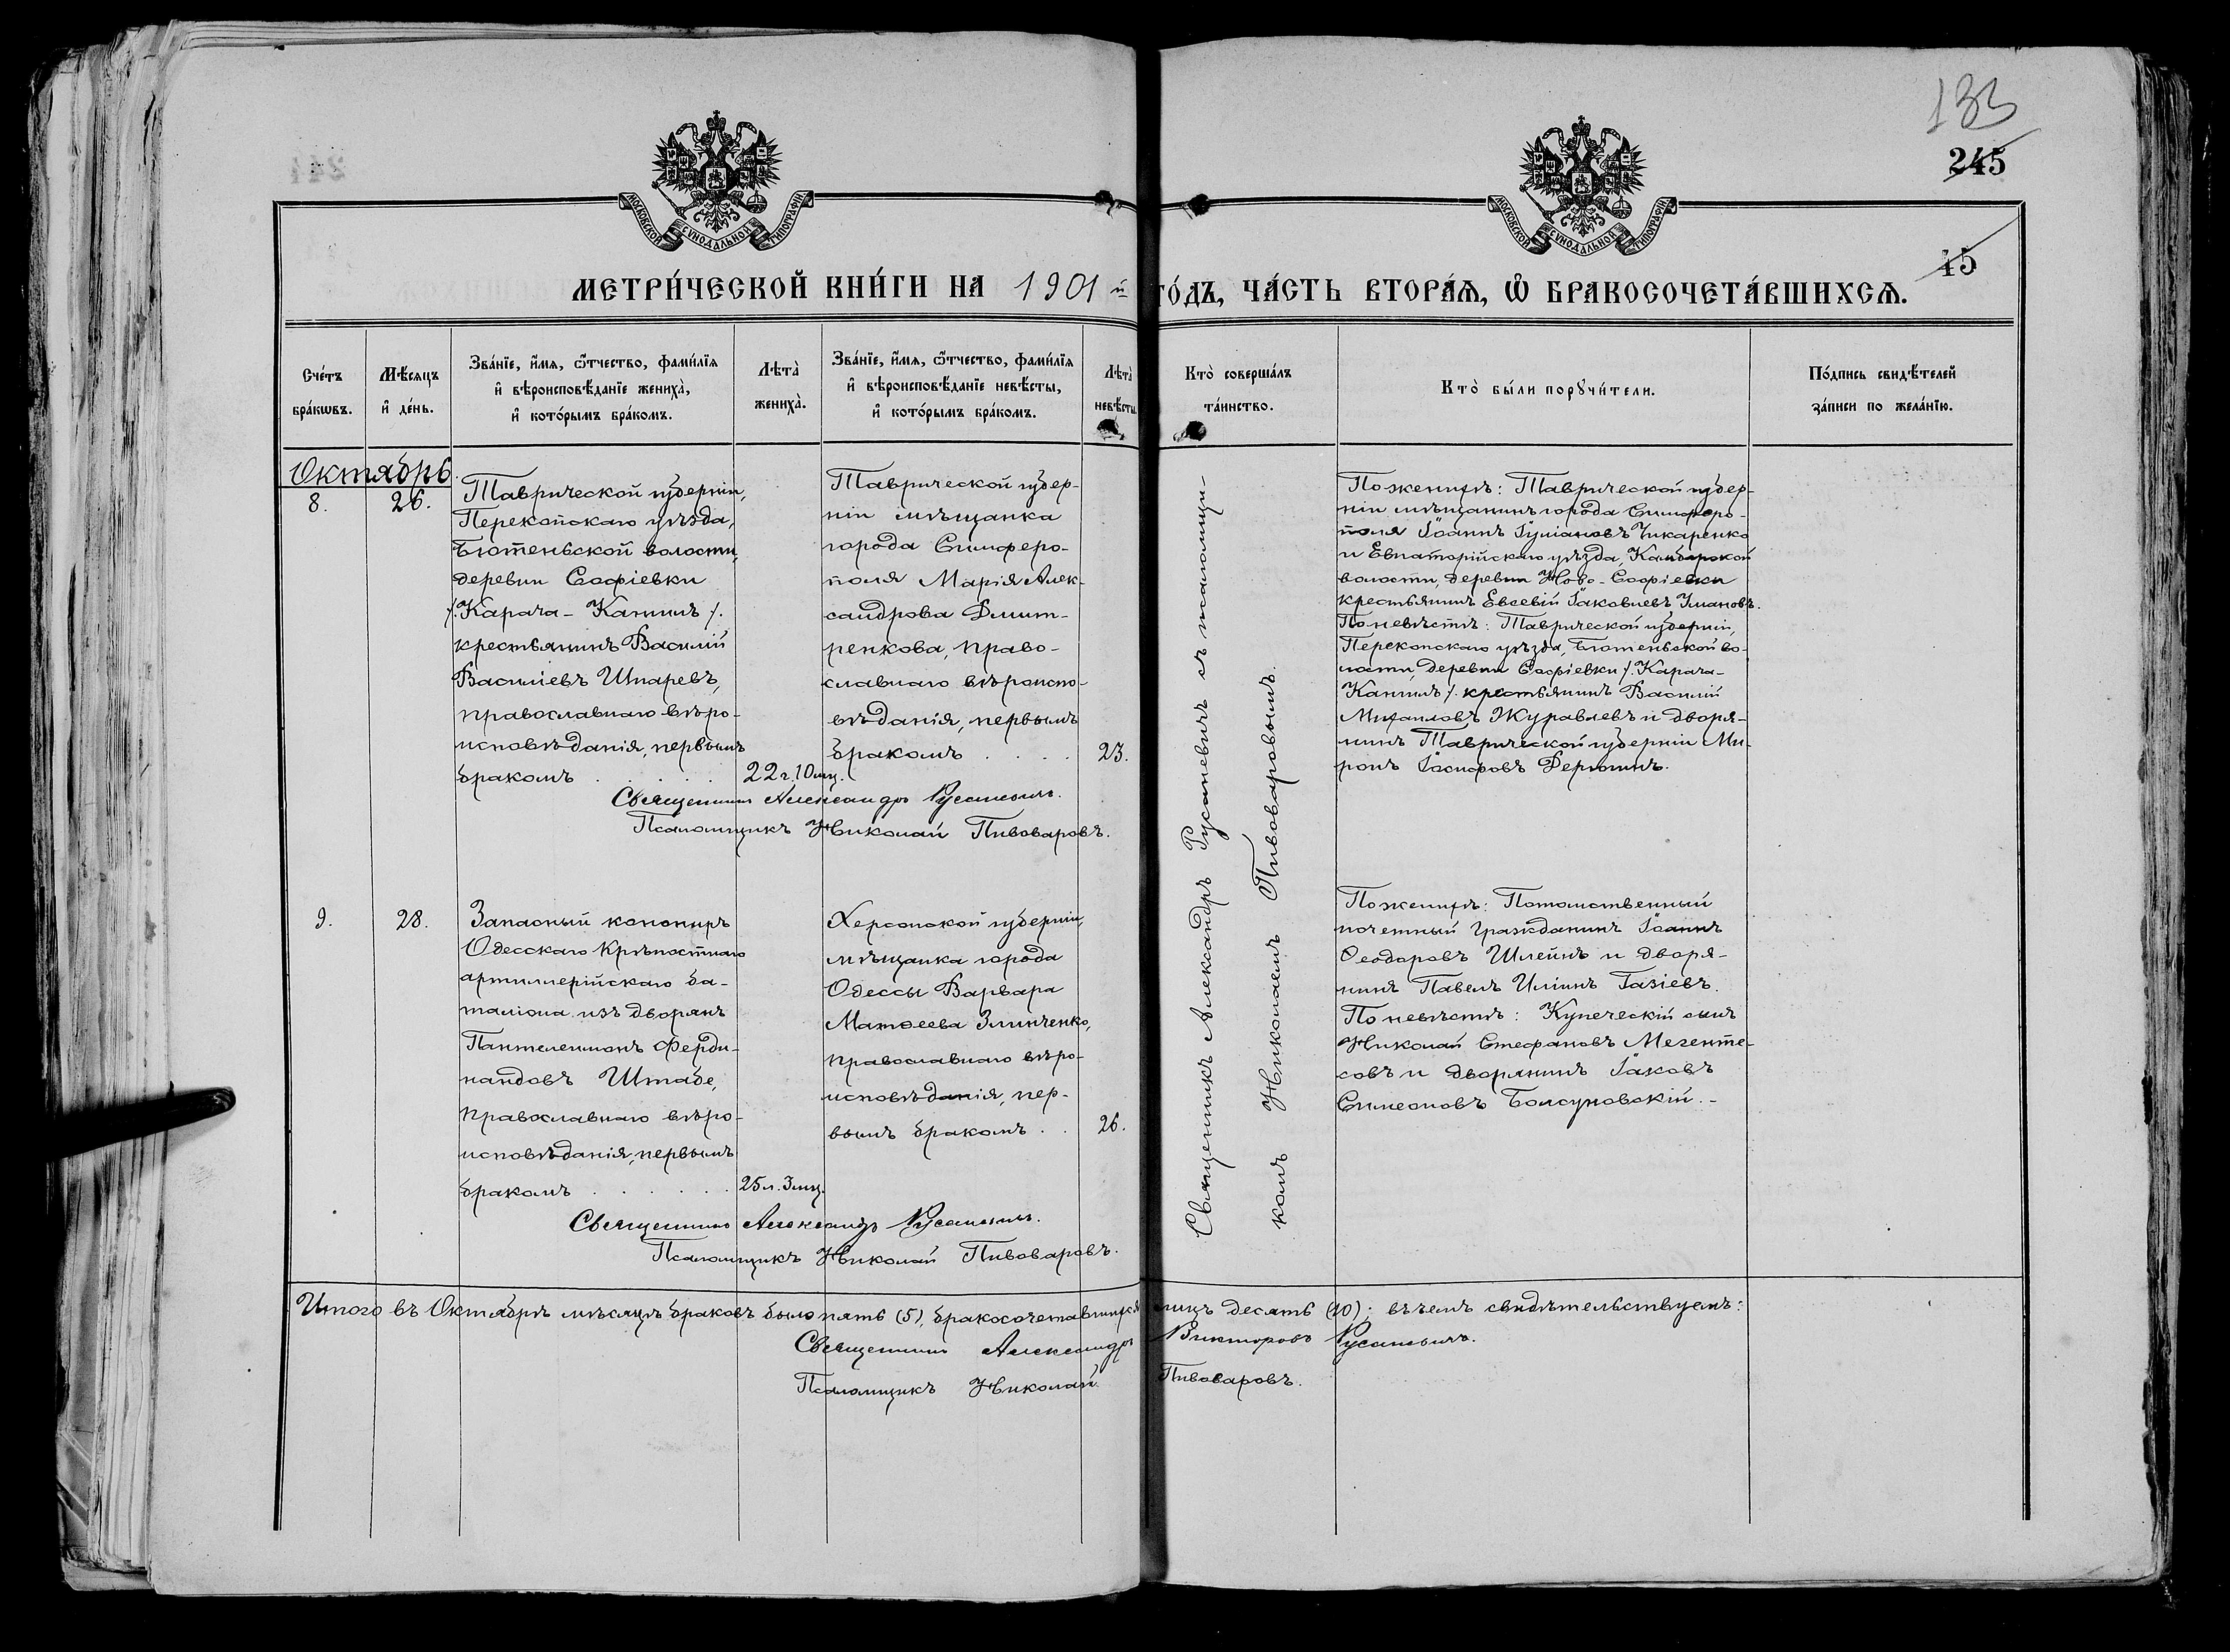 133
245
45
МОСКОВСКОЙ СУНОДАЛЬНОЙ ТИПОГРАФІИ
МОСКОВСКОЙ СУНОДАЛЬНОЙ ТИПОГРАФІИ
МЕТРИ́ЧЕСКОЙ КНИ́ГИ НА 1901 й ГО́ДЪ, ЧА́СТЬ ВТОРА́Ѧ, Ѽ БРАКОСОЧЕТА́ВШИХСѦ.
Сче́тъ
бра́кѡвъ.
Мѣ́сяцъ
и҆ де́нь.
Зва́нїе, и҆́мя, ѻ҆́тчество, фами́лїя
и҆ вѣроисповѣ́данїе жениха̀,
и҆ кото́рымъ бра́комъ.
Лѣта̀
жениха̀.
Зва́нїе, и҆́мя, ѻ҆́тчество, фами́лїя
и҆ вѣроисповѣ́данїе невѣ́сты,
и҆ кото́рымъ бра́комъ.
Лѣта̀
невѣ́сты.
Кто̀ соверша́лъ
та́инство.
Кто̀ бы́ли порꙋчи́тели.
По́дпись свидѣ́телей
за́писи по жела́нїю.
Октябрь.
8.
26.
Таврической губерніи,
Перекопскаго уѣзда,
Бютеньской волости,
деревни Софіевки
/. Карача-Кангилъ /.
крестьянинъ Василій
Василіевъ Шпаревъ,
православнаго вѣро-
исповѣданія, первымъ
бракомъ . . . .
22 г. 10 мц.
Таврической губер-
ніи мѣщанка
города Симферо-
поля Марія Алек-
сандрова Дмит-
ренкова, право-
славнаго вѣроиспо-
вѣданія, первымъ
бракомъ . . . .
23.
Священникъ Александръ Русаневичъ.
Псаломщикъ Николай Пивоваровъ.
Священникъ Александръ Русаневичъ съ псаломщи-
комъ Николаемъ Пивоваровымъ.
По женихѣ: Таврической губер-
ніи мѣщанинъ города Симферо-
поля Іоаннъ Іуліановъ Чикаренко
и Евпаторійскаго уѣзда,
волости, деревни Ново-Софіевки
крестьянинъ Евсевій Іаковлевъ Умановъ.
По невѣстѣ: Таврической губерніи,
Перекопскаго уѣзда, Бютеньской во-
лости, деревни Софіевки /. Карача-
Кангилъ /. крестьянинъ Василій
Михаиловъ Журавлевъ и дворя-
нинъ Таврической губерніи Ми-
ронъ Іосифовъ Дерюгинъ.
9.
28.
Запасный канониръ
Одесскаго Крѣпостнаго
артиллерійскаго ба-
таліона изъ дворянъ
Пантелеимонъ Ферди-
нандовъ Штабе,
православнаго вѣро-
исповѣданія, первымъ
бракомъ . . . .
25 л. 3 мц.
Херсонской губерніи,
мѣщанка города
Одессы Варвара
Матѳеева Злинченко,
православнаго вѣро-
исповѣданія, пер-
вымъ бракомъ . .
26.
По женихѣ: Потомственный
почетный гражданинъ Іоаннъ
Ѳеодоровъ Шлейнъ и дворя-
нинъ Павелъ Иліинъ Газіевъ.
По невѣстѣ: Купеческій сынъ
Николай Стефановъ Мегенте-
совъ и дворянинъ Іаковъ
Симеоновъ Болсуновскій.-
Священникъ Александръ Русаневичъ.
Псаломщикъ Николай Пивоваровъ.
Итого въ Октябрѣ мѣсяцѣ браковъ было пять (5), бракосочетавшихся лицъ десять (10); въ чемъ свидѣтельствуемъ:
Священникъ Александръ Викторовъ Русаневичъ.
Псаломщикъ Николай Пивоваровъ.